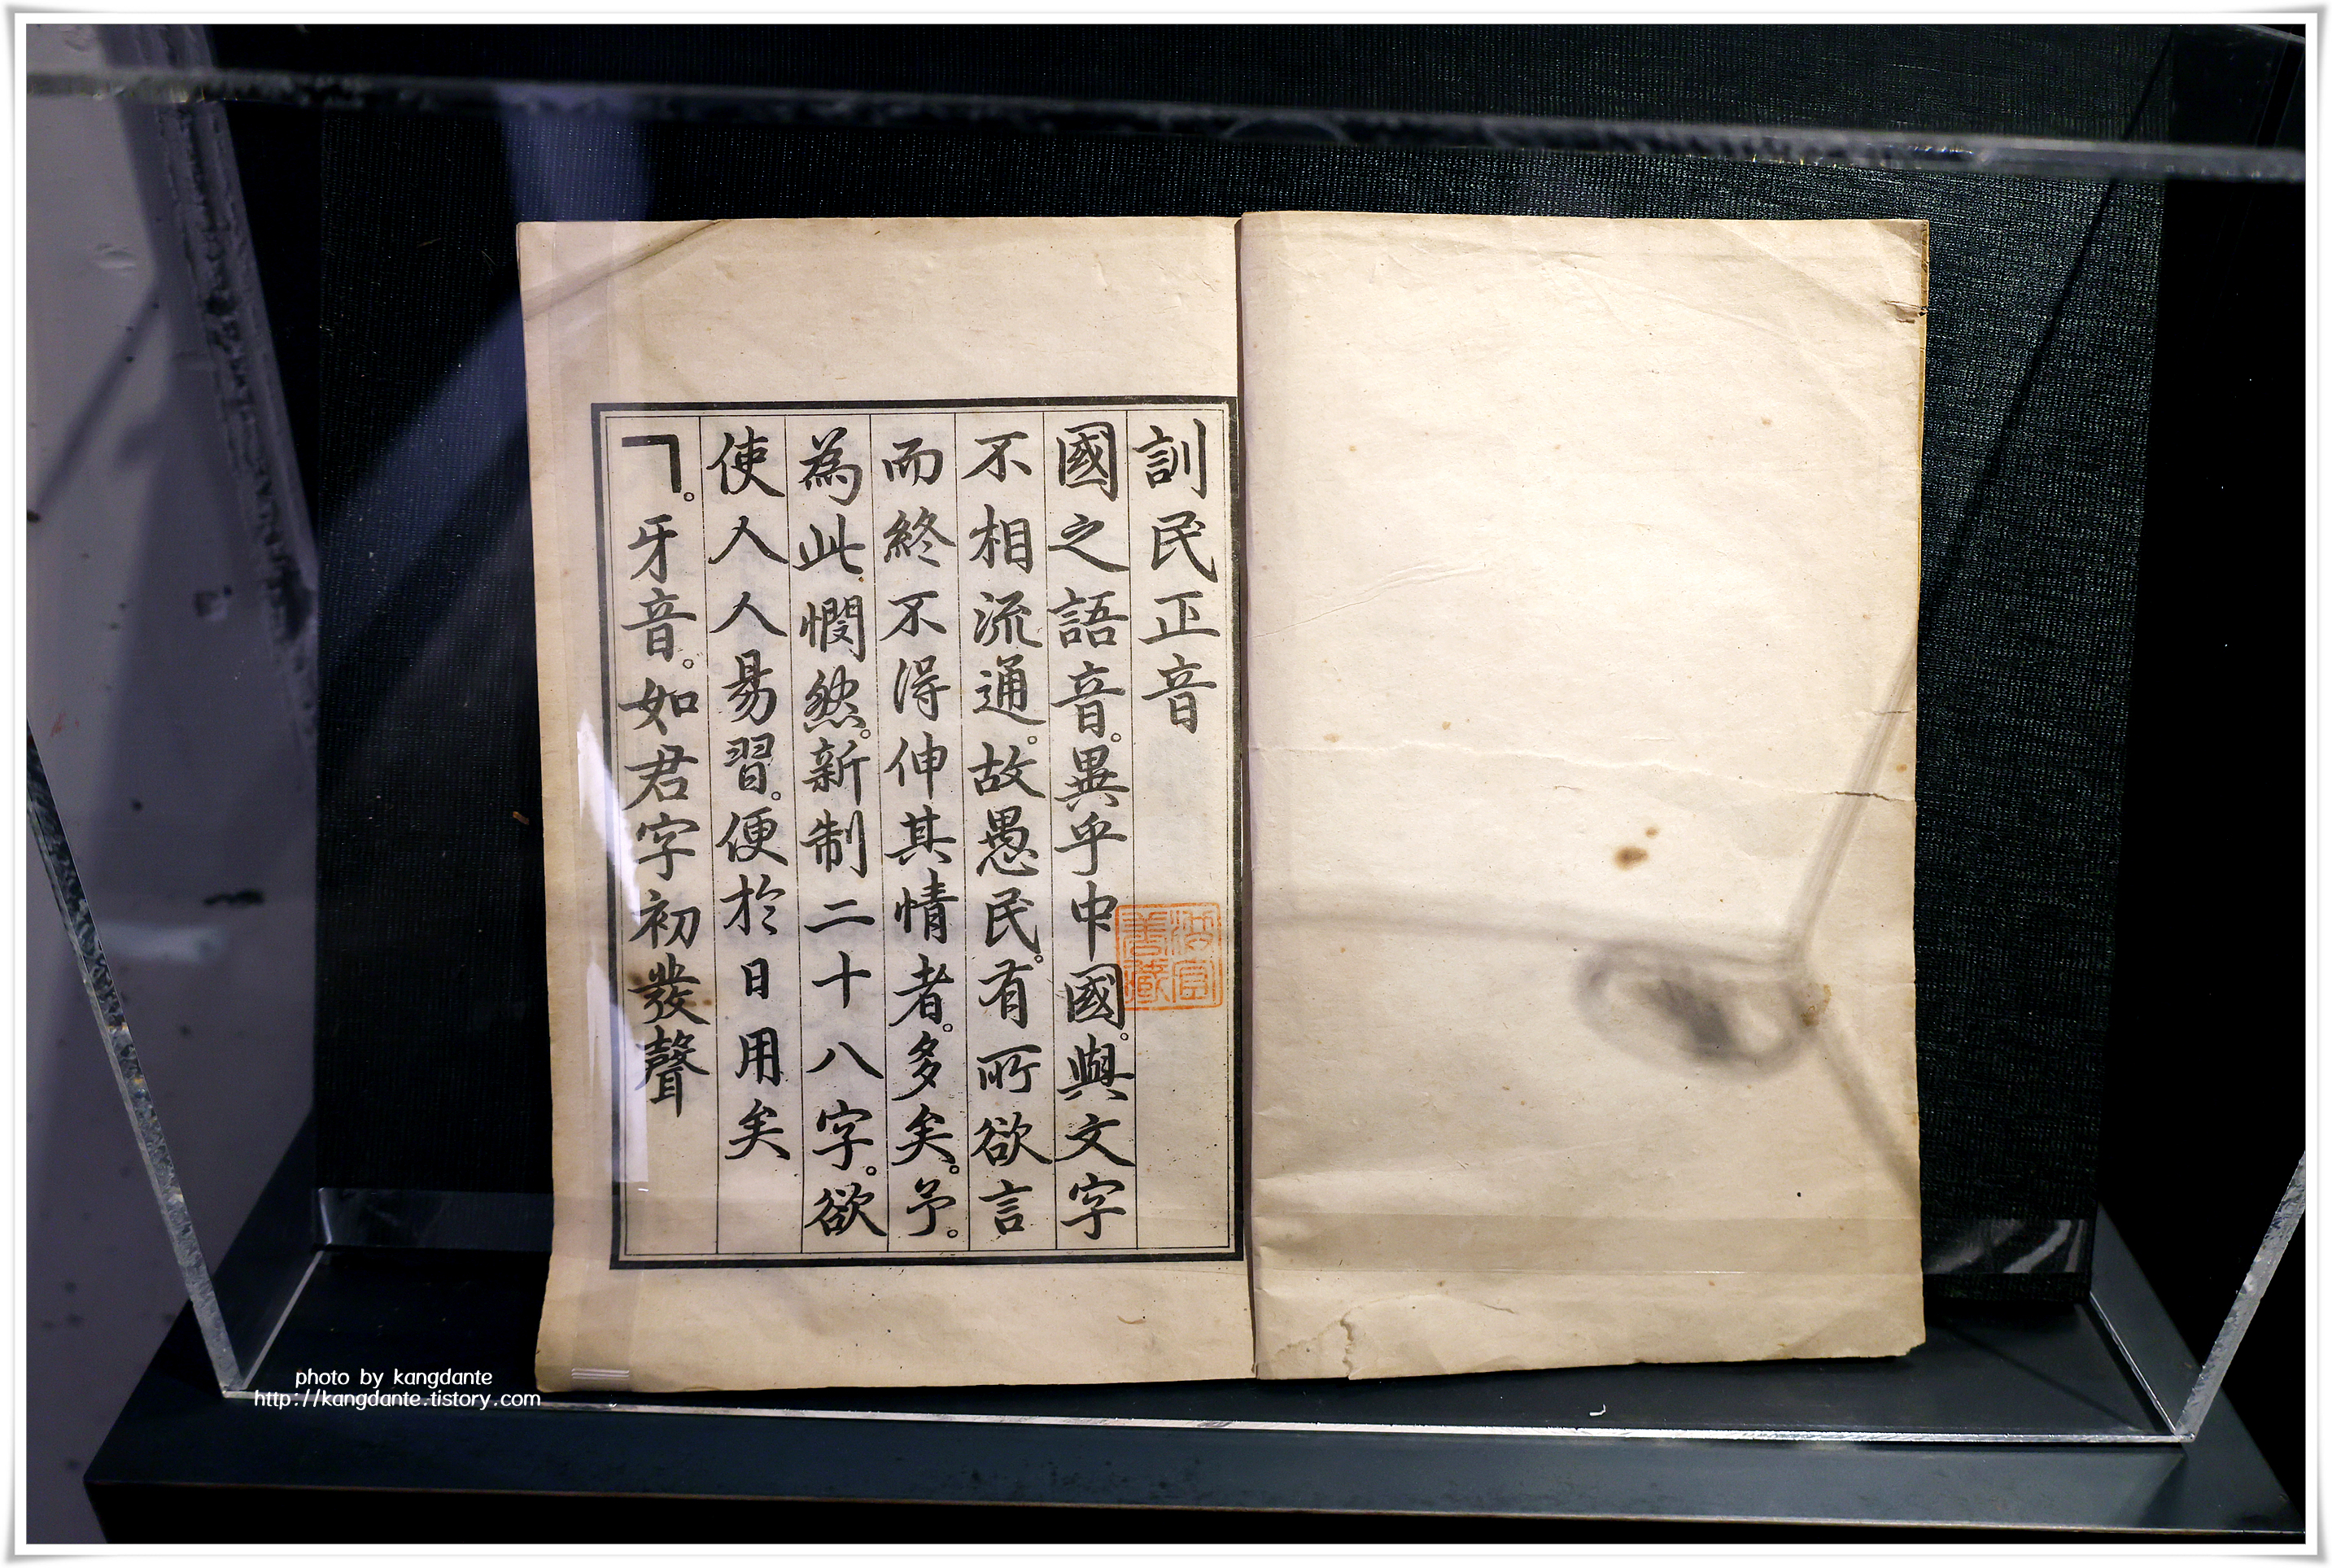 訓民正音
國之語音。異乎中國。與文字
不相流通。故愚民。有所欲言
而終不得伸其情者。多矣。予。
為此憫然。新制二十八字。欲
使人人易習。便於日用矣
ㄱ。牙音。如君字初發聲
photo by kangdante
http://kangdante.tistory.com